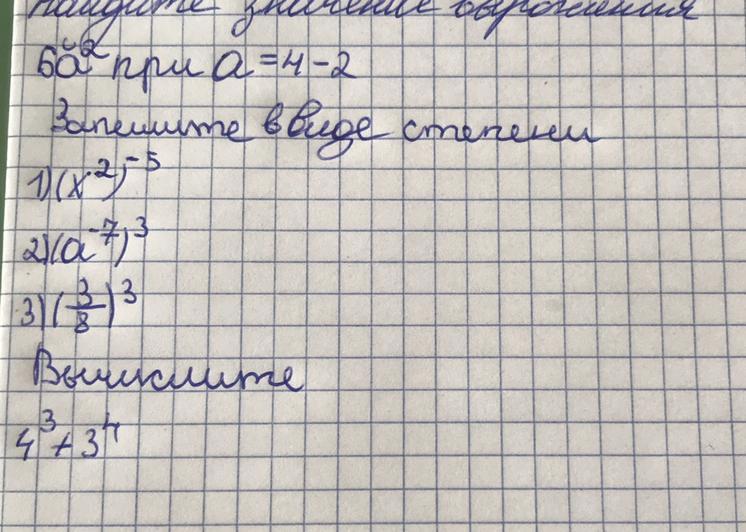 Найдите значение выражения
6a² при a = 4 - 2
Запишите в виде степени
1) (x²)⁻⁵
2) (a⁻⁷)³
3) (3/8)³
Вычислите
4³ + 3⁴